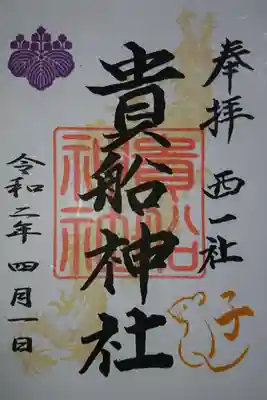 奉拝 西一社
貴船神社
貴船
神社
子
令和二年 四月一日